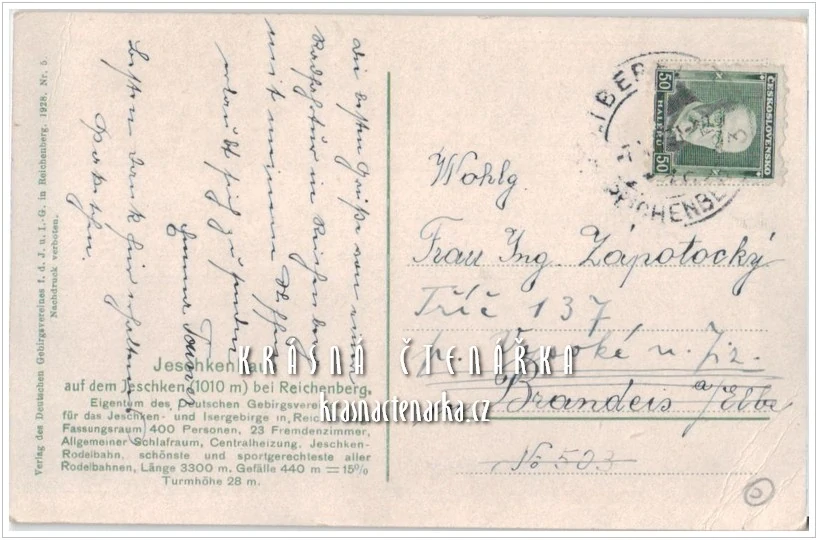 Verlag des Deutschen Gebirgsvereines f. d. J. u. I.-G. in Reichenberg. 1928. Nr. 5.
Nachdruck verboten.
die besten Grüße von einer
Radpartie in Reichenberg
mit meinem
erlaubt sich zu senden
Emma
Besten Dank für erhaltene
Jeschkenhau
auf dem Jeschken (1010 m) bei Reichenberg.
Eigentum des Deutschen Gebirgsverei
für das Jeschken- und Isergebirge in Reic
Fassungsraum 400 Personen, 23 Fremdenzimmer,
Allgemeiner Schlafraum, Centralheizung. Jeschken-
Rodelbahn, schönste und sportgerechteste aller
Rodelbahnen, Länge 3300 m. Gefälle 440 m = 15%
Turmhöhe 28 m.
KRÁSNÁ ČTENÁŘKA
krasnactenarka.cz
LIBER
REICHENBE
ČESKOSLOVENSKO
50 HALÉŘŮ 50
Wohlg.
Frau Ing. Zápotocký
Tříč 137
p. Vysoké n. Jiz.
Brandeis a/Elbe
No 503